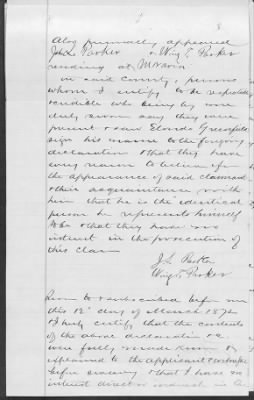 Also personally appeared
Jno L Parker & Wing T. Parker
residing at
in said County, persons
whom I certify to be respectable
& credible who being by me
duly sworn say they were
present & saw Greenfield
sign his name to the foregoing
declaration & that they have
every reason to believe from
the appearance of said claimant
& their acquaintance with
him that he is the identical
person he represents himself
to be & that they have no
interest in the prosecution of
this claim
J L Parker
Wing T Parker
Sworn to & subscribed before me
this 12" day of March 187
& I hereby certify that the contents
of the above declaration &c
were fully made known &
explained to the applicant & witnesses
before swearing & that I have no
interest direct or indirect in the